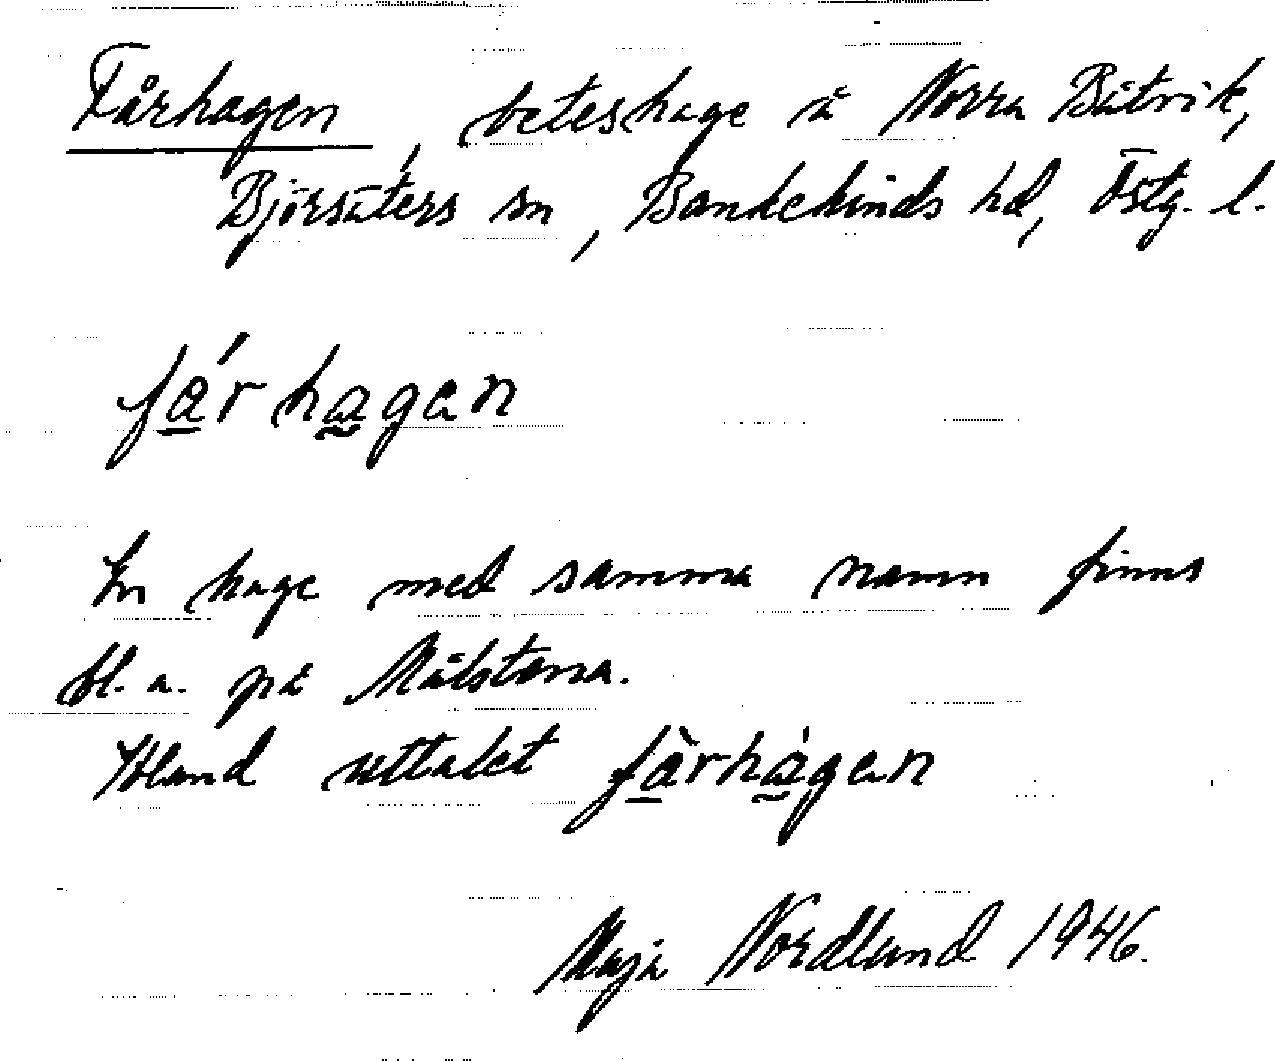 Fårhagen, beteshage å Norra Båtvik,
Björsäters sn, Bankekinds hd, Östg. l.
fǻrhagen
En hage med samma namn finns
bl. a. på Målstena.
Ibland uttalet få̀rhágen
Maja Nordlund 1946.